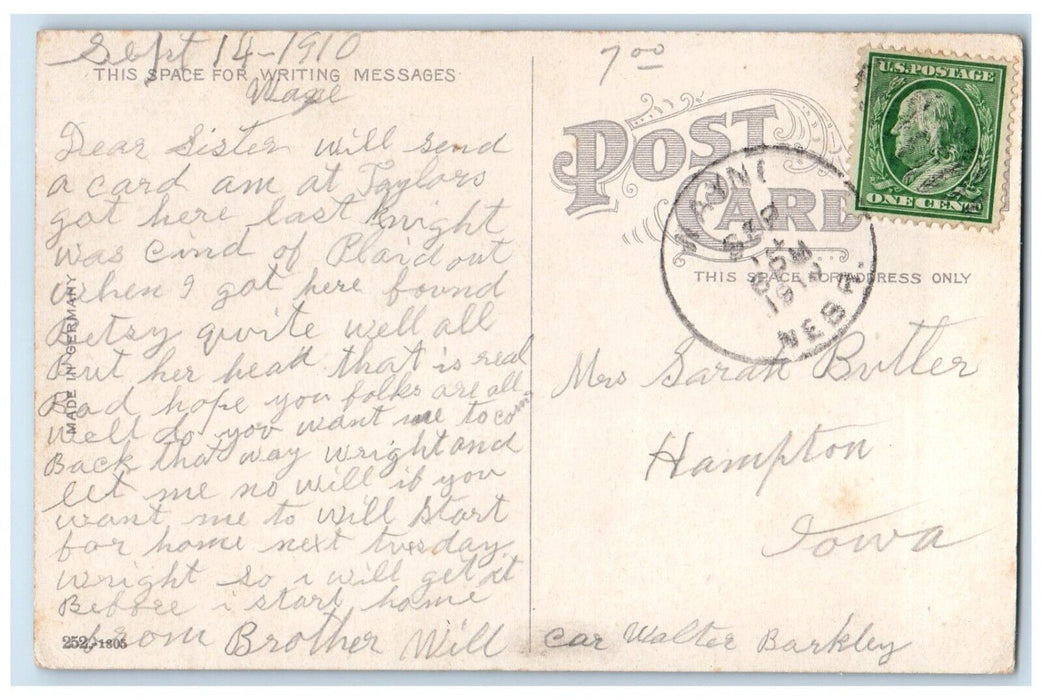 Sept 14-1910
THIS SPACE FOR WRITING MESSAGES
Dear Sister will send
a card am at Taylors
got here last Knight
was cind of Plaid out
when I got here found
Betsy qvite well all
But her head that is real
Bad hope you folks are all
well do yov want me to come
Back that way wright and
let me no will if you
want me to will start
for home next tvesday
wright so i will get it
Before i start home
from Brother Will
MADE IN GERMANY
252-1805
7.00
POST CARD
THIS SPACE FOR ADDRESS ONLY
U.S. POSTAGE
ONE CENT
SEP
15
NEBR.
Mrs Sarah Bvtler
Hampton
Iowa
Car Walter Barkley